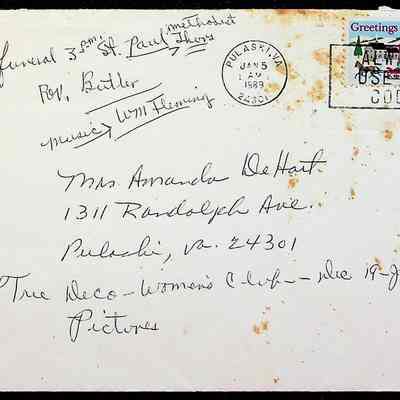 Methodist
funeral 3 pm: St. Paul Thurs
Rev. Butler
music > Wm Fleming
Greetings
PULASKI, VA
JAN 5
AM
1989
24301
ALW
USE
COD
Mrs Amanda DeHart
1311 Randolph Ave.
Pulaski, Va. 24301
Tree Deco - Women's Club - Dec 19 - J
Pictures